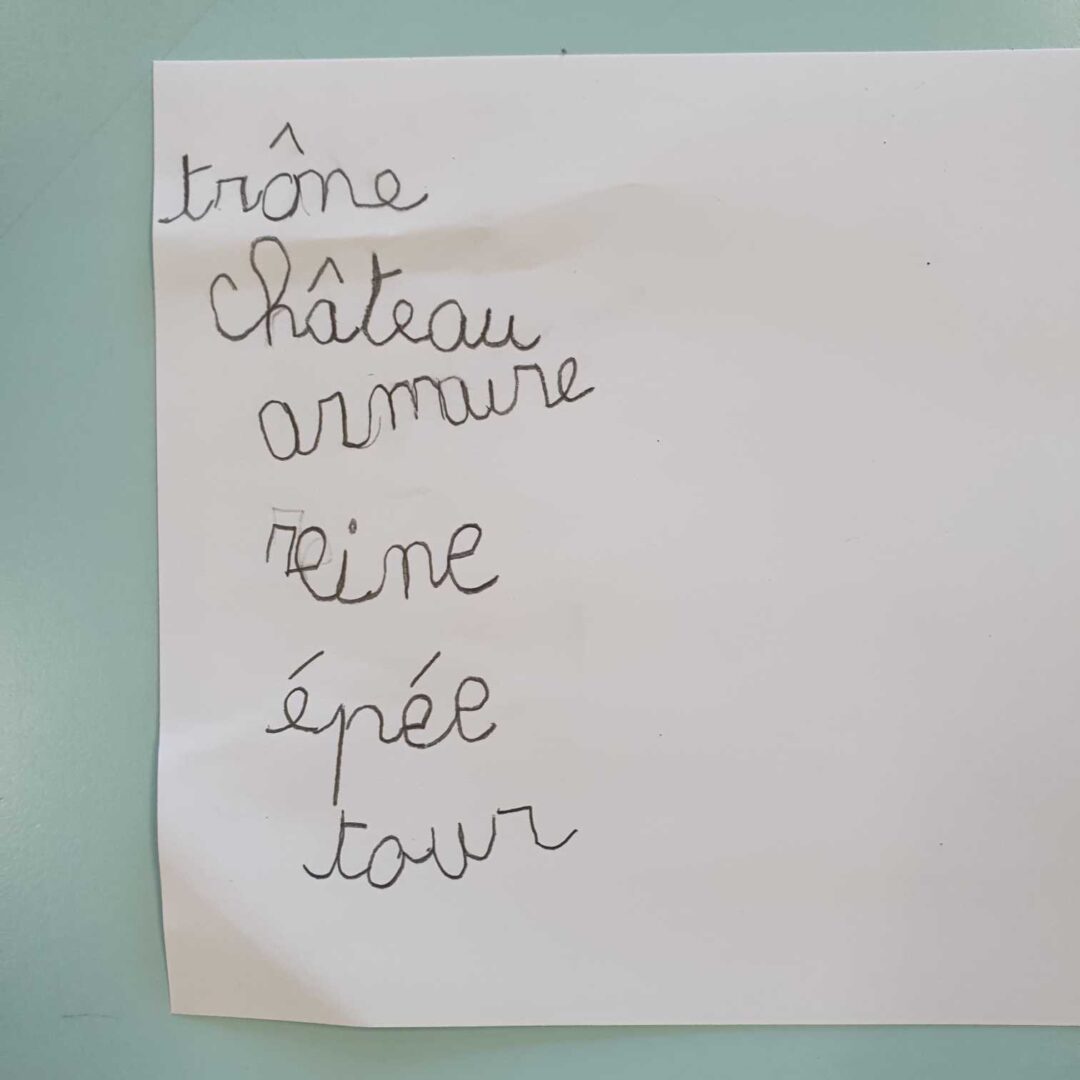 trône
château
armure
reine
épée
tour